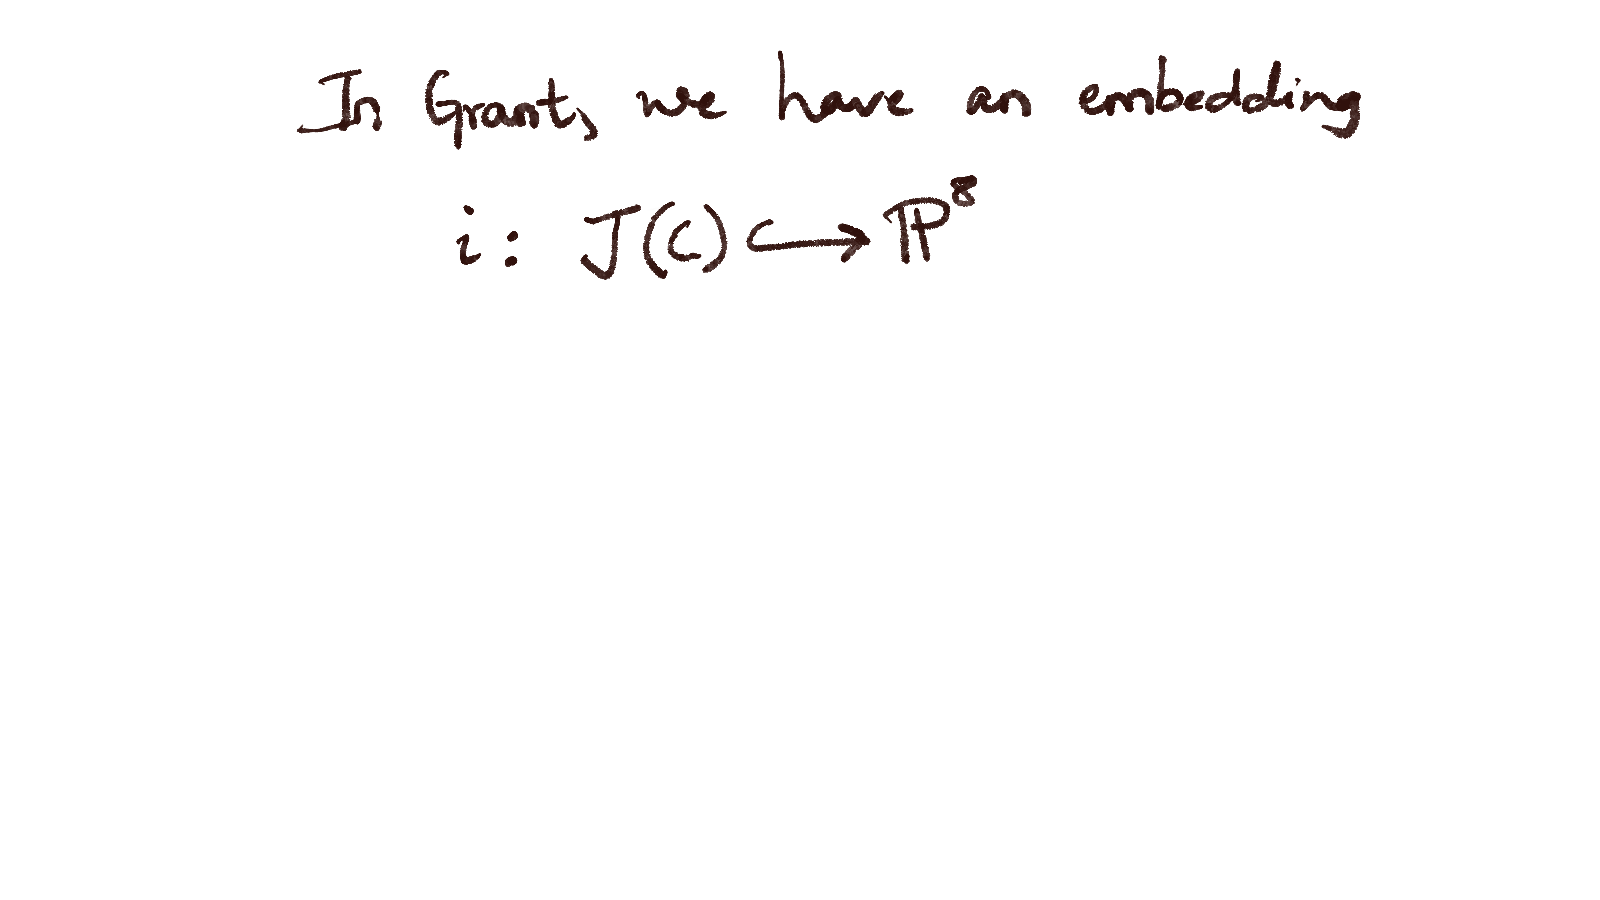 In Grant, we have an embedding
i: J(C) ↪ ℙ⁸